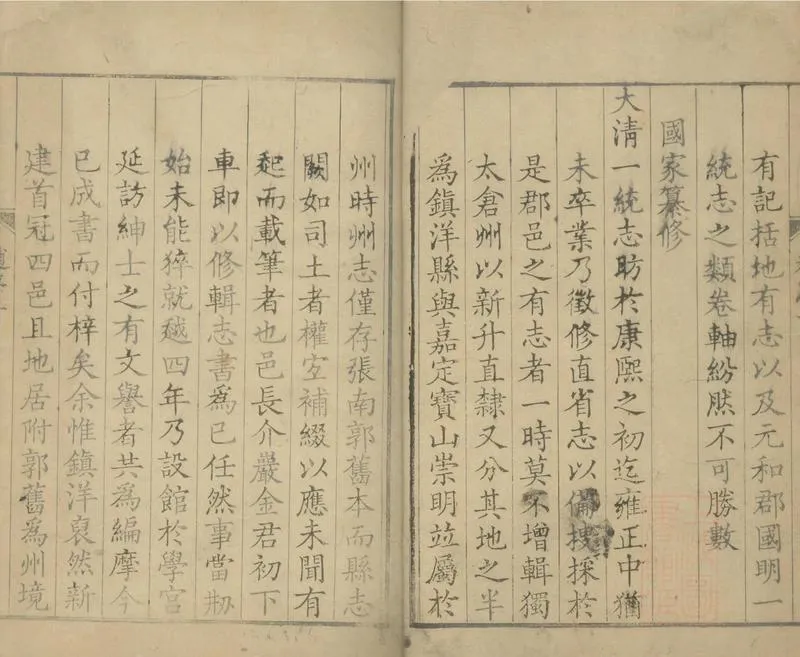 有記括地有志以及元和郡國明一
統志之類卷軸紛然不可勝數
國家纂修
大清一統志昉於康熙之初迄雍正中猶
未卒業乃徵修直省志以備捜採於
是郡邑之有志者一時莫不增輯獨
太倉州以新升直隸又分其地之半
為鎮洋縣與嘉定寶山崇明並屬於
州時州志僅存張南郭舊本而縣志
闕如司土者權宜補綴以應未聞有
起而載筆者也邑長介嚴金君初下
車即以修輯志書為已任然事當刱
始未能猝就越四年乃設館於學宮
延訪紳士之有文譽者共為編摩今
已成書而付梓矣余惟鎮洋裒然新
建首冠四邑且地居附郭舊為州境